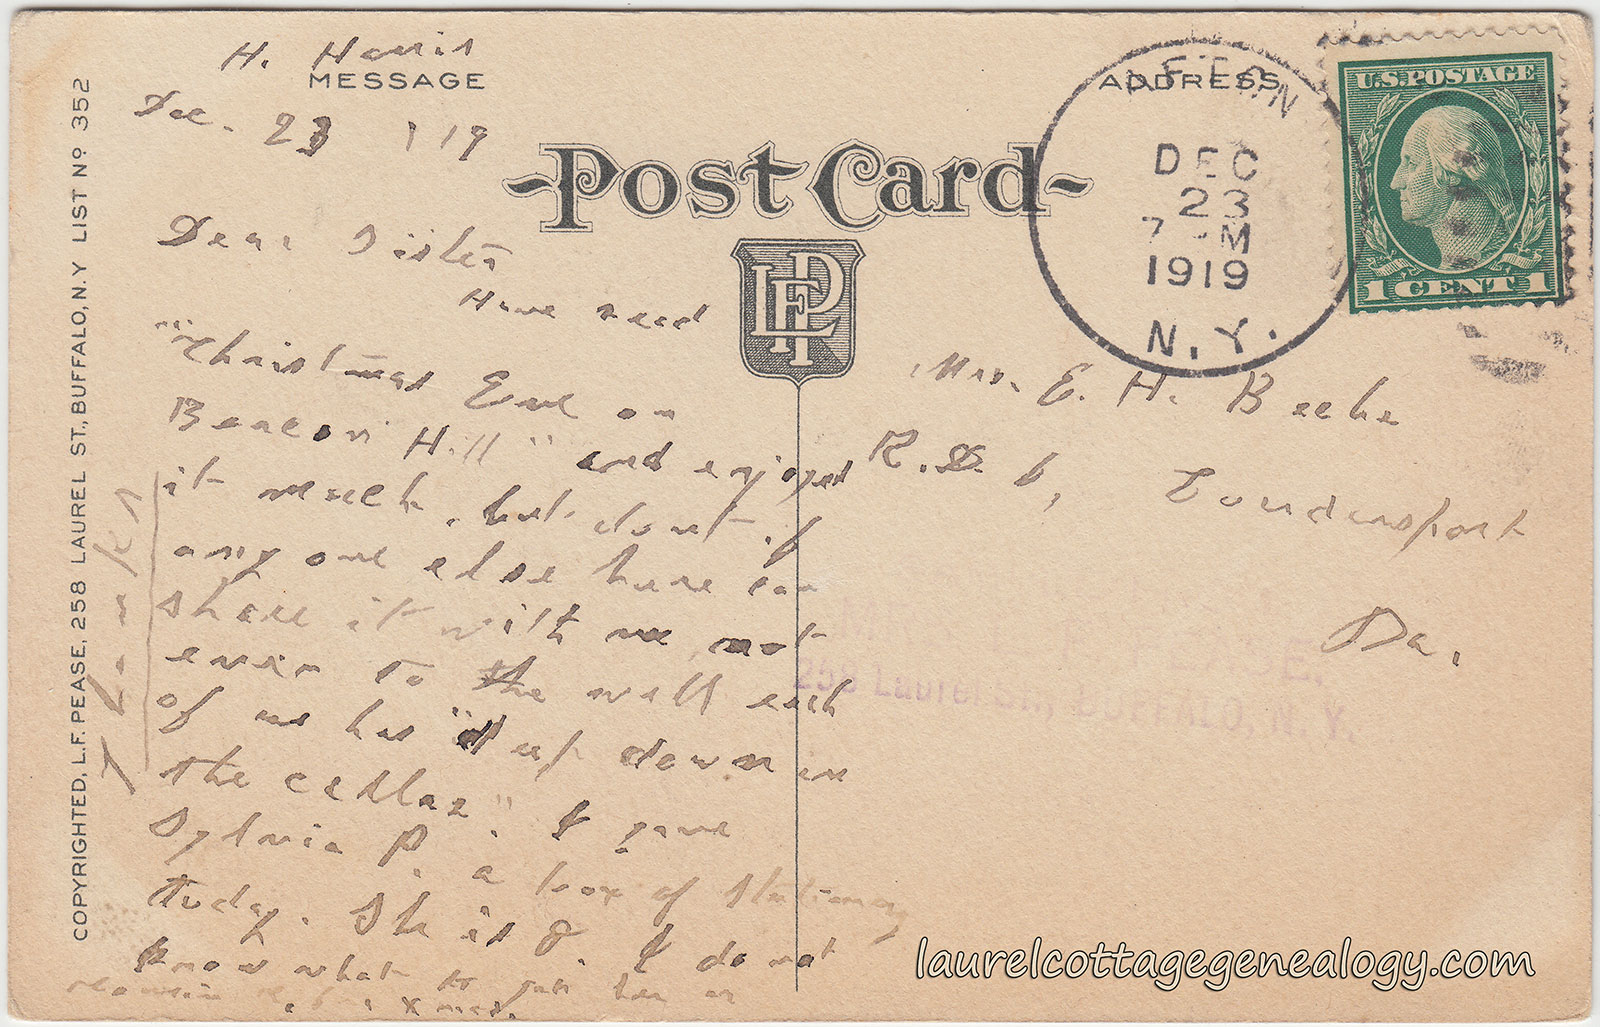 H. Harris
MESSAGE
Dec. 23 1919
Dear Sister
Have read
"Christmas Eve on
Beacon Hill" and enjoyed
it much, but dont if
any one else here can
share it with me not
even to the well each
of us has "down in
the cellar". I gave
Sylvia P. a box of Stationery
today. She is 8 I do not
know what to
Xmas.
POST CARD
LFP
ADDRESS
DEC
23
7 M
1919
N.Y.
U.S. POSTAGE
1 CENT 1
Mrs. E. H. Beebe
R.D. 6, Coudersport
Pa.
258 Laurel St., BUFFALO, N.Y.
COPYRIGHTED, L.F. PEASE, 258 LAUREL ST., BUFFALO, N.Y. LIST No. 352
laurelcottagegenealogy.com